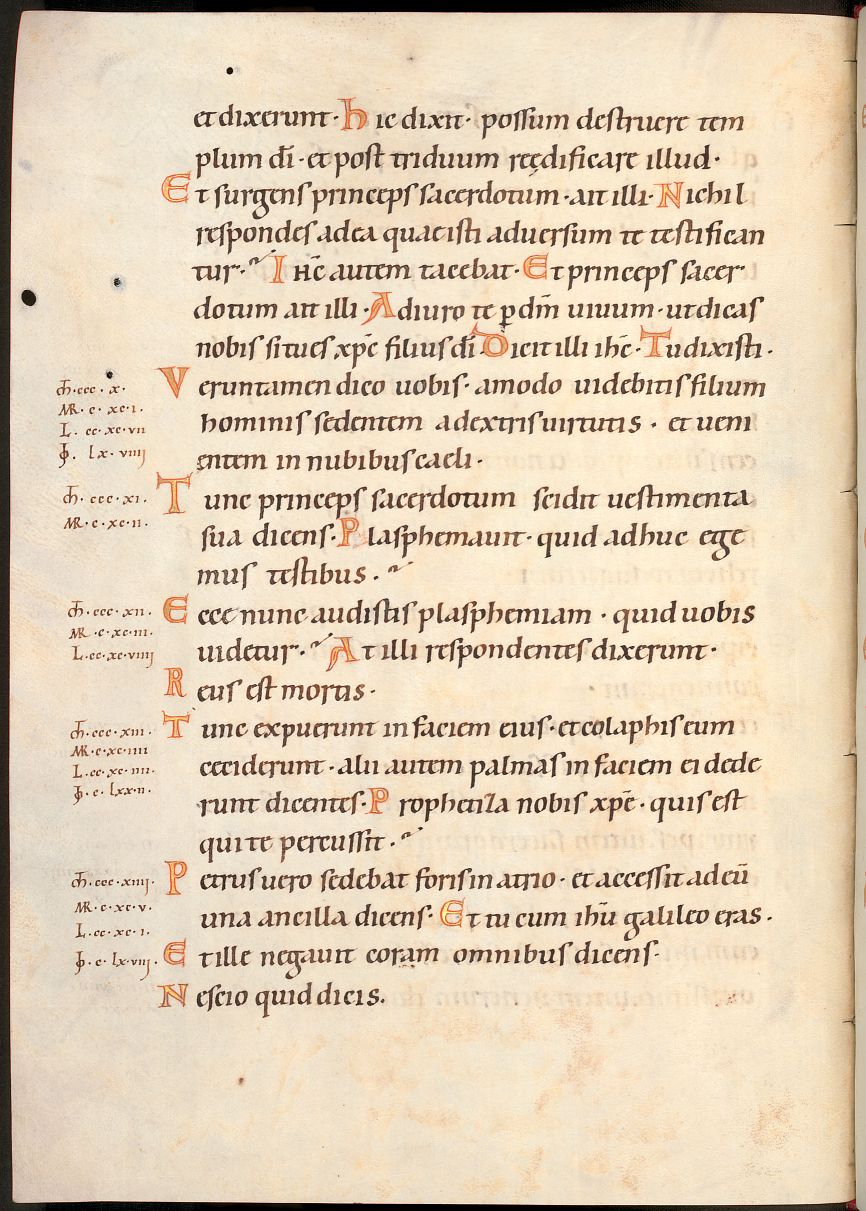 et dixerunt· hic dixit· possum destruere tem
plum dī· et post triduum reędificare illud·
Et surgens princeps sacerdotum· ait illi· Nichil
respondes ad ea quae isti adversum te testifican
tur· Ihc̄ autem tacebat· Et princeps sacer
dotum ait illi· Adiuro te ꝑ dm̄ uiuum· ut dicas
nobis si tu es xpc̄ filius dī· Dicit illi ihc̄· Tu dixisti·
m̄·ccc·x·
Veruntamen dico uobis· amodo uidebitis filium
MR·c·xc·i·
hominis sedentem a dextris uirtutis· et ueni
L·cc·xc·vii
Io·lx·viiij
entem in nubibus caeli·
m̄·ccc·xi·
Tunc princeps sacerdotum scidit uestimenta
MR·c·xc·ii·
sua dicens· Plasphemauit· quid adhuc ege
mus testibus·
m̄·ccc·xii·
Ecce nunc audistis plasphemiam· quid uobis
MR·c·xc·iii·
L·cc·xc·viiij
uidetur· At illi respondentes dixerunt·
Reus est mortis·
m̄·ccc·xiii·
Tunc expuerunt in faciem eius· et colaphis eum
MR·c·xc·iiii
L·cc·xc·iiii·
ceciderunt· alii autem palmas in faciem ei dede
Io·c·lxx·ii·
runt dicentes· Prophetiza nobis xpē· quis est
qui te percussit·
m̄·ccc·xiiij·
Petrus uero sedebat foris in atrio· et accessit ad eū
MR·c·xc·v·
una ancilla dicens· Et tu cum ihū galileo eras·
L·cc·xc·i·
Io·c·lx·viij·
Et ille negauit coram omnibus dicens·
Nescio quid dicis.